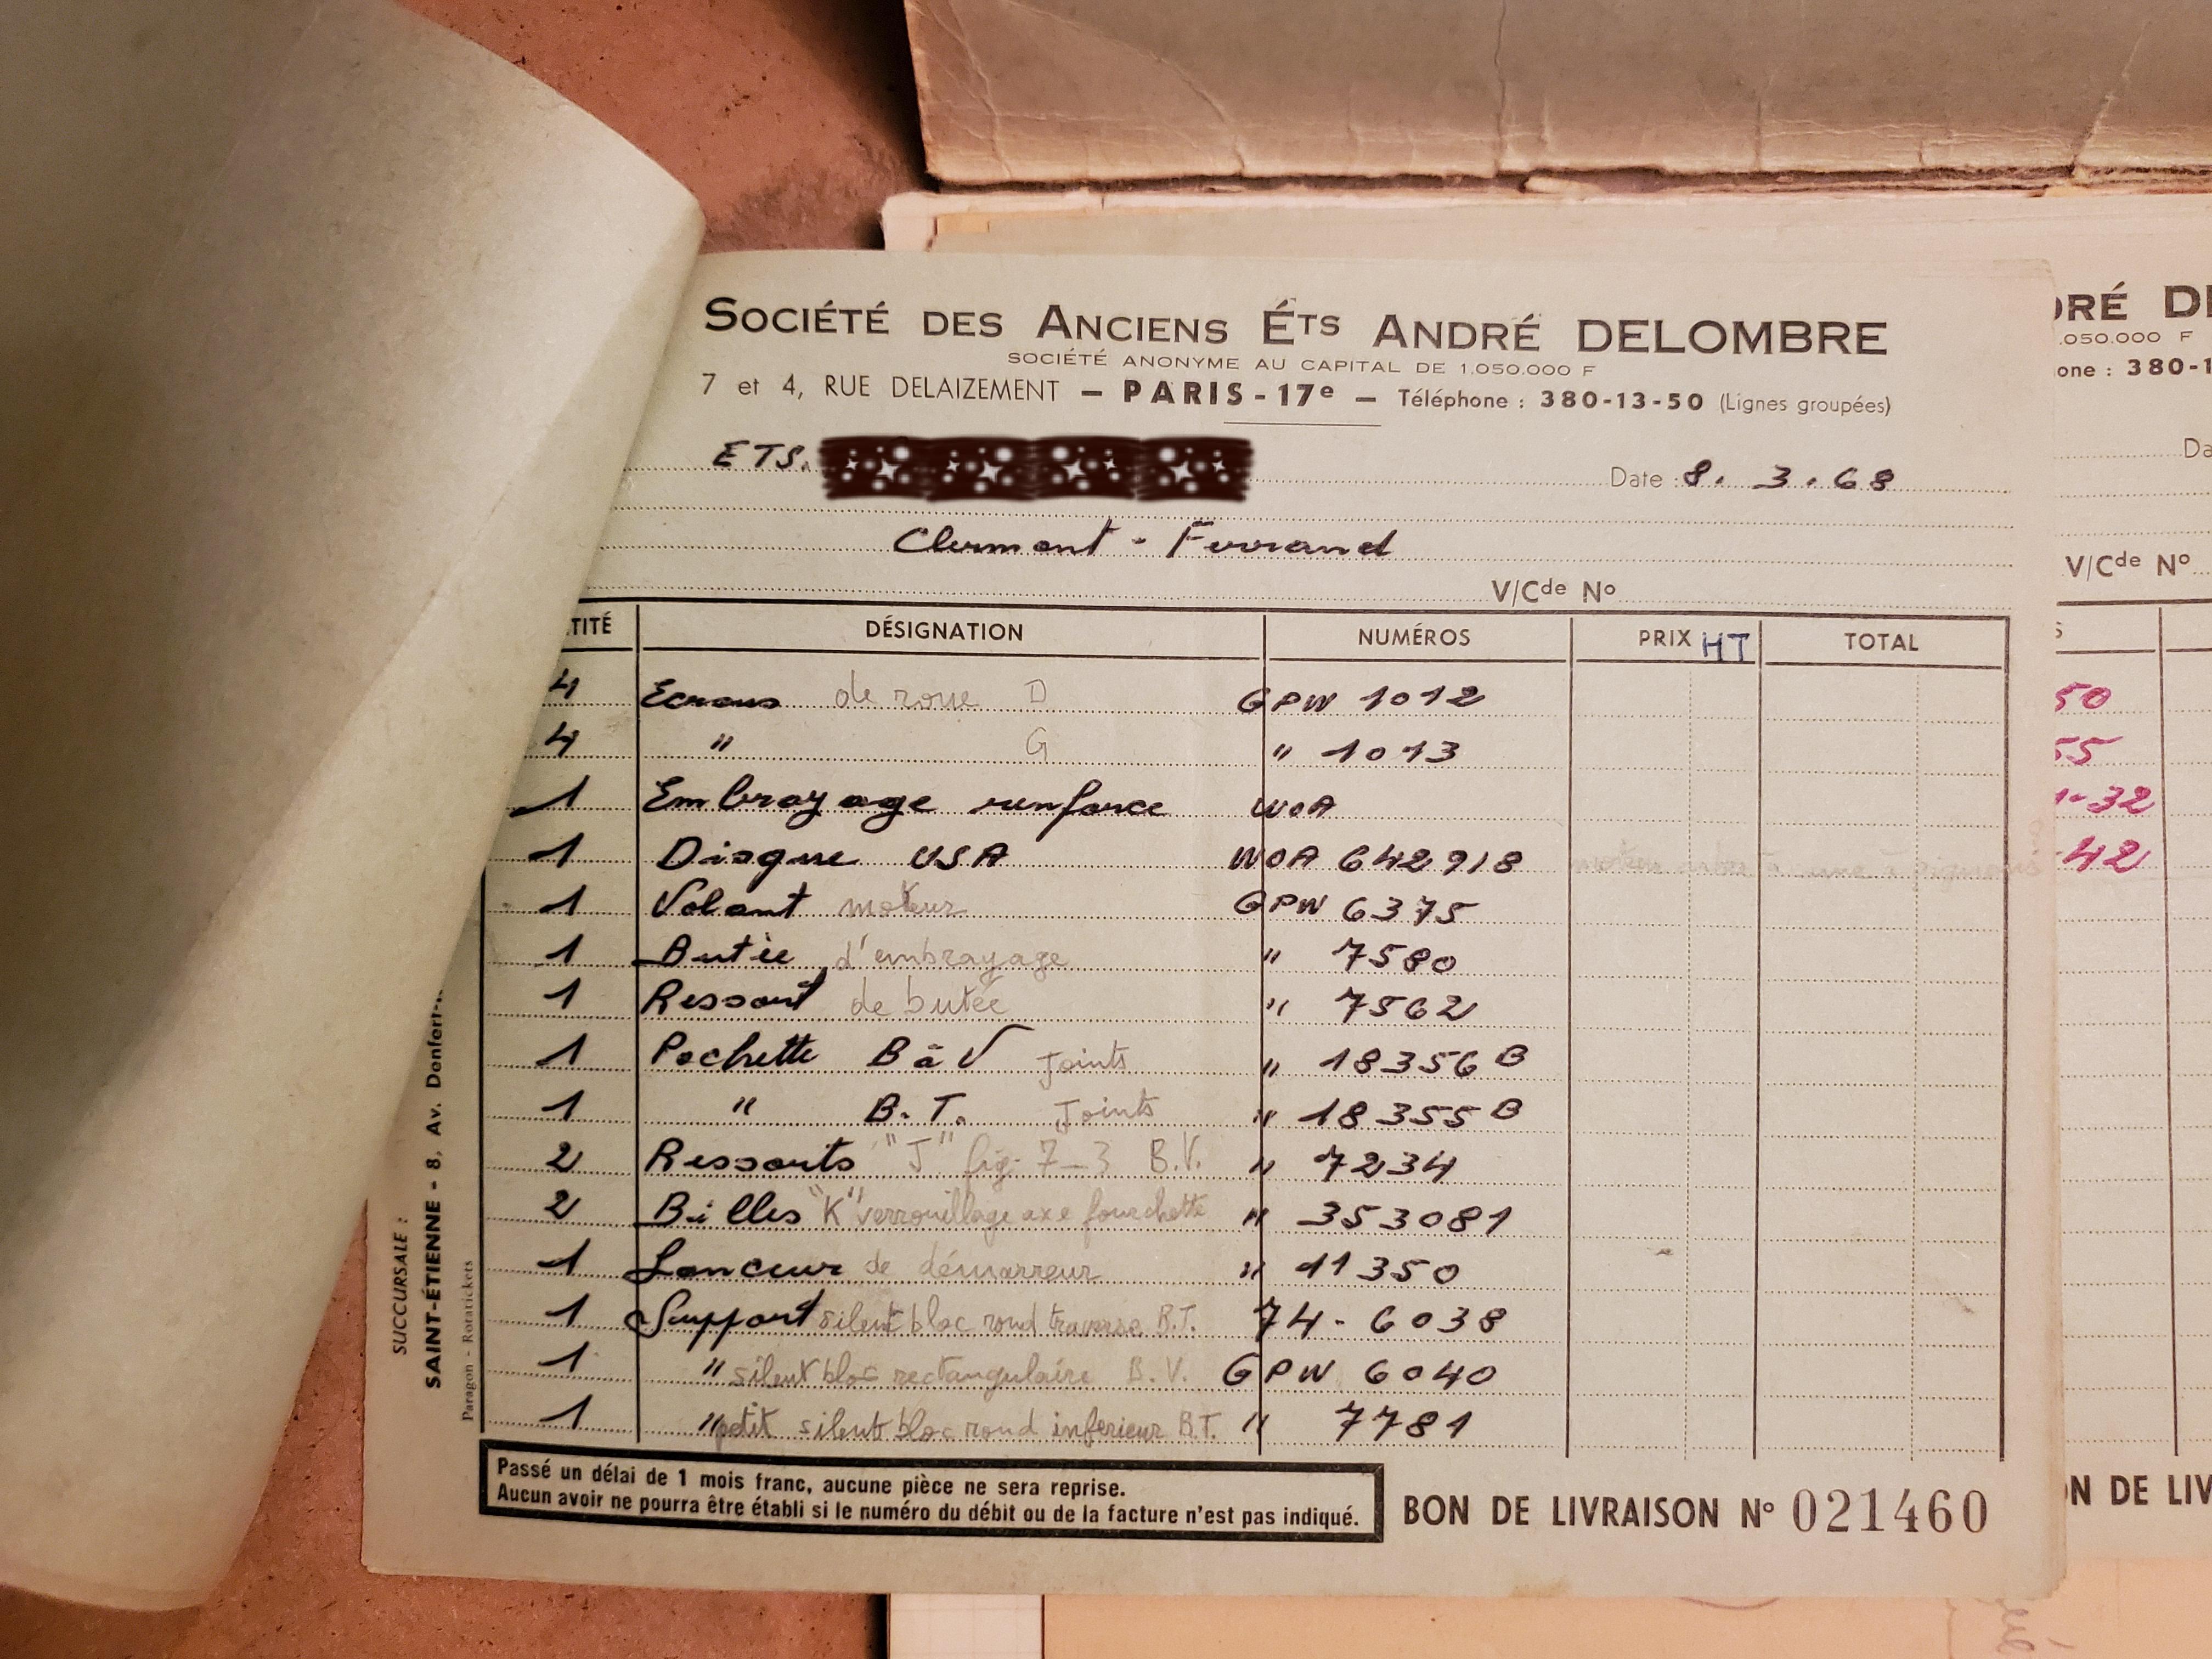 SOCIÉTÉ DES ANCIENS ÉTS ANDRÉ DELOMBRE
SOCIÉTÉ ANONYME AU CAPITAL DE 1.050.000 F
7 et 4, RUE DELAIZEMENT — PARIS-17e — Téléphone : 380-13-50 (Lignes groupées)
ETS. Date : 8. 3. 68
Clermont - Ferrand
V/Cde No
TITÉ DÉSIGNATION NUMÉROS PRIX HT TOTAL
4 Ecrous de roue D GPW 1012
4 " G " 1013
1 Embrayage renforce WOA
1 Disque USA WOA 642918
1 Volant moteur GPW 6375
1 Butée d'embrayage " 7580
1 Ressort de butée " 7562
1 Pochette B à V Joints " 18356 B
1 " B.T. Joints " 18355 B
2 Ressorts "J" fig. 7-3 B.V. " 7234
2 Billes "K" verrouillage axe fourchette " 353081
1 Lanceur de démarreur " 11350
1 Support silent bloc rond traverse B.T. 74-6038
1 " silent bloc rectangulaire B.V. GPW 6040
1 " petit silent bloc rond inferieur B.T. " 7781
Passé un délai de 1 mois franc, aucune pièce ne sera reprise.
Aucun avoir ne pourra être établi si le numéro du débit ou de la facture n'est pas indiqué.
BON DE LIVRAISON No 021460
SUCCURSALE :
SAINT-ÉTIENNE - 8, Av. Denfert-
Paragon - Rotatickets
DRÉ
.050.000 F
one : 380-1
V/Cde No
50
55
1-32
-42
DE LIV